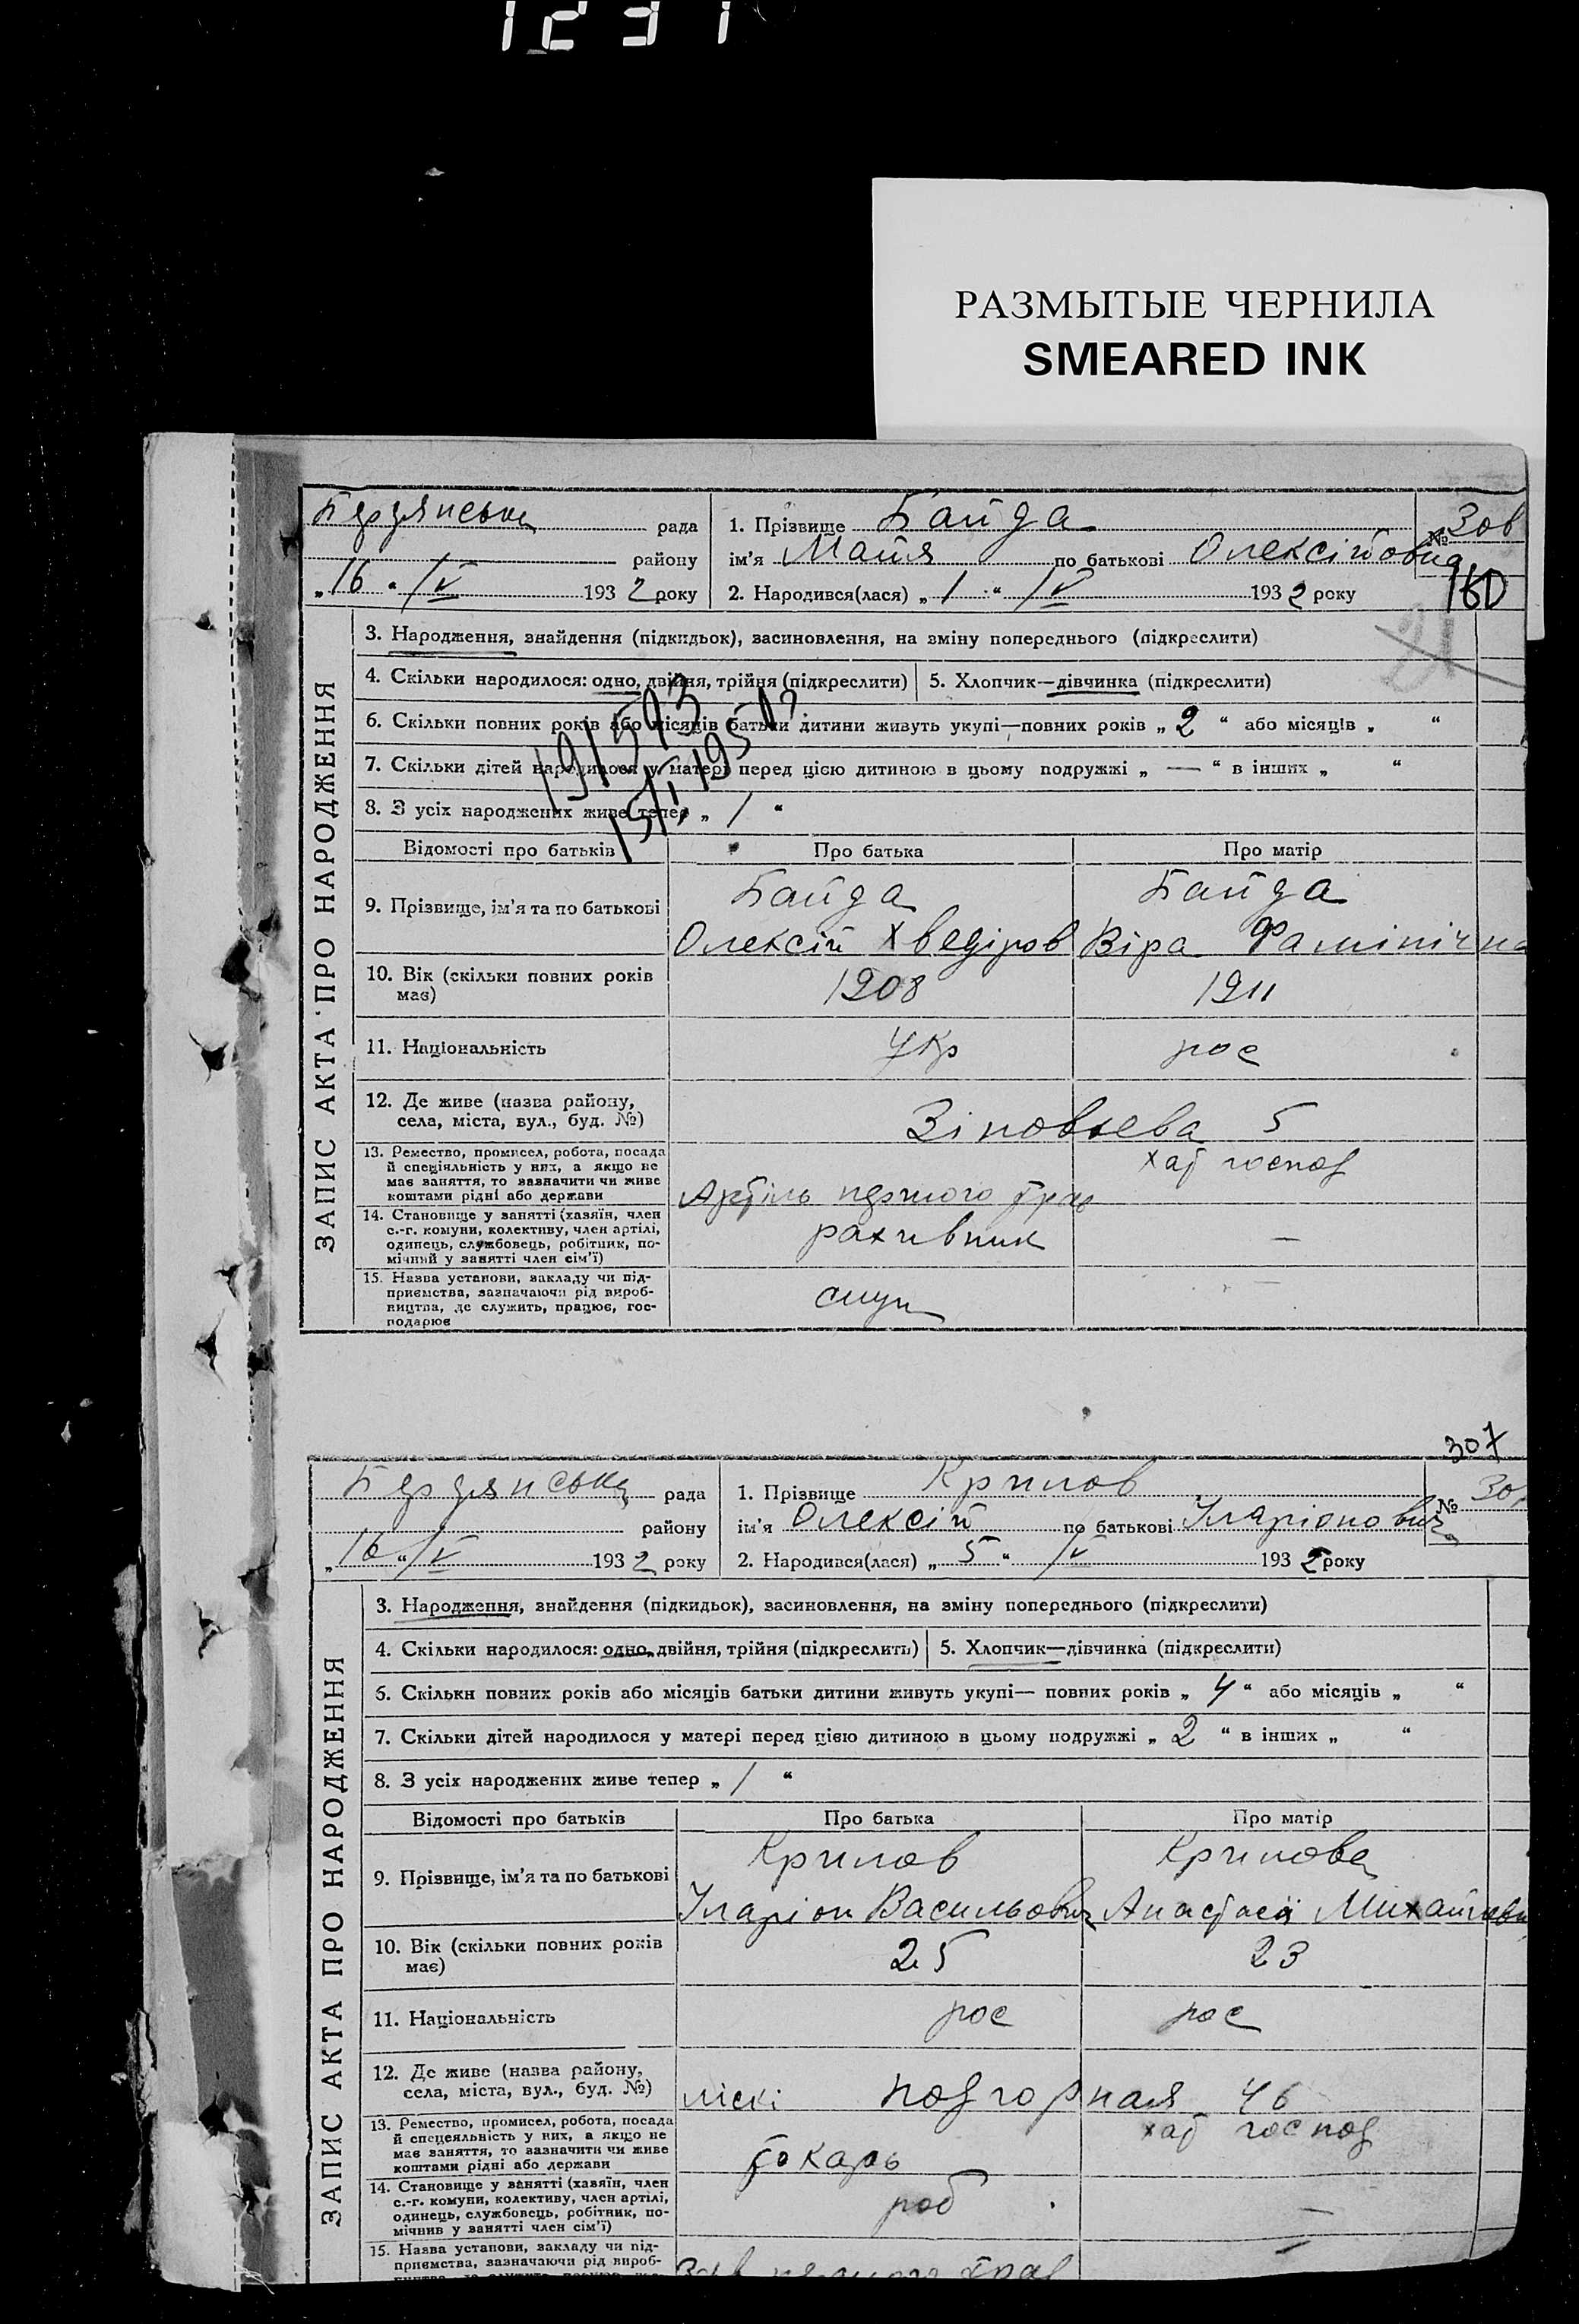 1231
РАЗМЫТЫЕ ЧЕРНИЛА
SMEARED INK
Бердянська рада
району
„16“ IV 1932 року
1. Прізвище Байда
ім'я Майя по батькові Олексійовна
2. Народився(лася) „1“ IV 1932 року
№ 306
160
21
ЗАПИС АКТА ПРО НАРОДЖЕННЯ
3. Народження, знайдення (підкидьок), засиновлення, на зміну попереднього (підкреслити)
4. Скільки народилося: одно, двійня, трійня (підкреслити) 5. Хлопчик—дівчинка (підкреслити)
6. Скільки повних років або місяців батьки дитини живуть укупі—повних років „2“ або місяців „ “
7. Скільки дітей народилося у матері перед цією дитиною в цьому подружжі „—“ в інших „ “
8. З усіх народжених живе тепер „1“
Відомості про батьків Про батька Про матір
9. Прізвище, ім'я та по батькові
Байда Байда
Олексій Хведіров Віра
10. Вік (скільки повних років має)
1908 1911
11. Національність укр рос
12. Де живе (назва району,
села, міста, вул., буд. №)
Зіновьева 5
13. Ремество, промисел, робота, посада
й спеціяльність у них, а якщо не
має заняття, то зазначити чи живе
коштами рідні або держави
Артіль хат господ
14. Становище у занятті (хазяїн, член
с.-г. комуни, колективу, член артілі,
одинець, службовець, робітник, по-
мічний у занятті член сім'ї)
рахивник —
15. Назва установи, закладу чи під-
приємства, зазначаючи рід вироб-
ництва, де служить, працює, гос-
подарює
—
307
Бердянська рада
району
„16“ IV 1932 року
1. Прізвище Крилов
ім'я Олексій по батькові Іларіонович
2. Народився(лася) „5“ IV 1932 року
№
ЗАПИС АКТА ПРО НАРОДЖЕННЯ
3. Народження, знайдення (підкидьок), засиновлення, на зміну попереднього (підкреслити)
4. Скільки народилося: одно, двійня, трійня (підкреслить) 5. Хлопчик—дівчинка (підкреслити)
5. Скільки повних років або місяців батьки дитини живуть укупі— повних років „4“ або місяців „ “
7. Скільки дітей народилося у матері перед цією дитиною в цьому подружжі „2“ в інших „ “
8. З усіх народжених живе тепер „1“
Відомості про батьків Про батька Про матір
9. Прізвище, ім'я та по батькові
Крилов Крилова
Іларіон Васильович Анастасія
10. Вік (скільки повних років має)
25 23
11. Національність рос рос
12. Де живе (назва району,
села, міста, вул., буд. №)
ліскі подгорная 46
13. Ремество, промисел, робота, посада
й спецеяльність у них, а якщо не
має заняття, то зазначити чи живе
коштами рідні або держави
токарь хат господ
14. Становище у занятті (хазяїн, член
с.-г. комуни, колективу, член артілі,
одинець, службовець, робітник, по-
мічнив у занятті член сім'ї)
роб —
15. Назва установи, закладу чи під-
приємства, зазначаючи рід вироб-